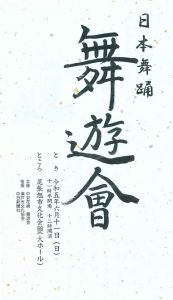 日本舞踊
舞遊會
とき 令和五年六月十一日（日）
十一時半開場 十二時開演
ところ 尾張旭市文化会館（大ホール）